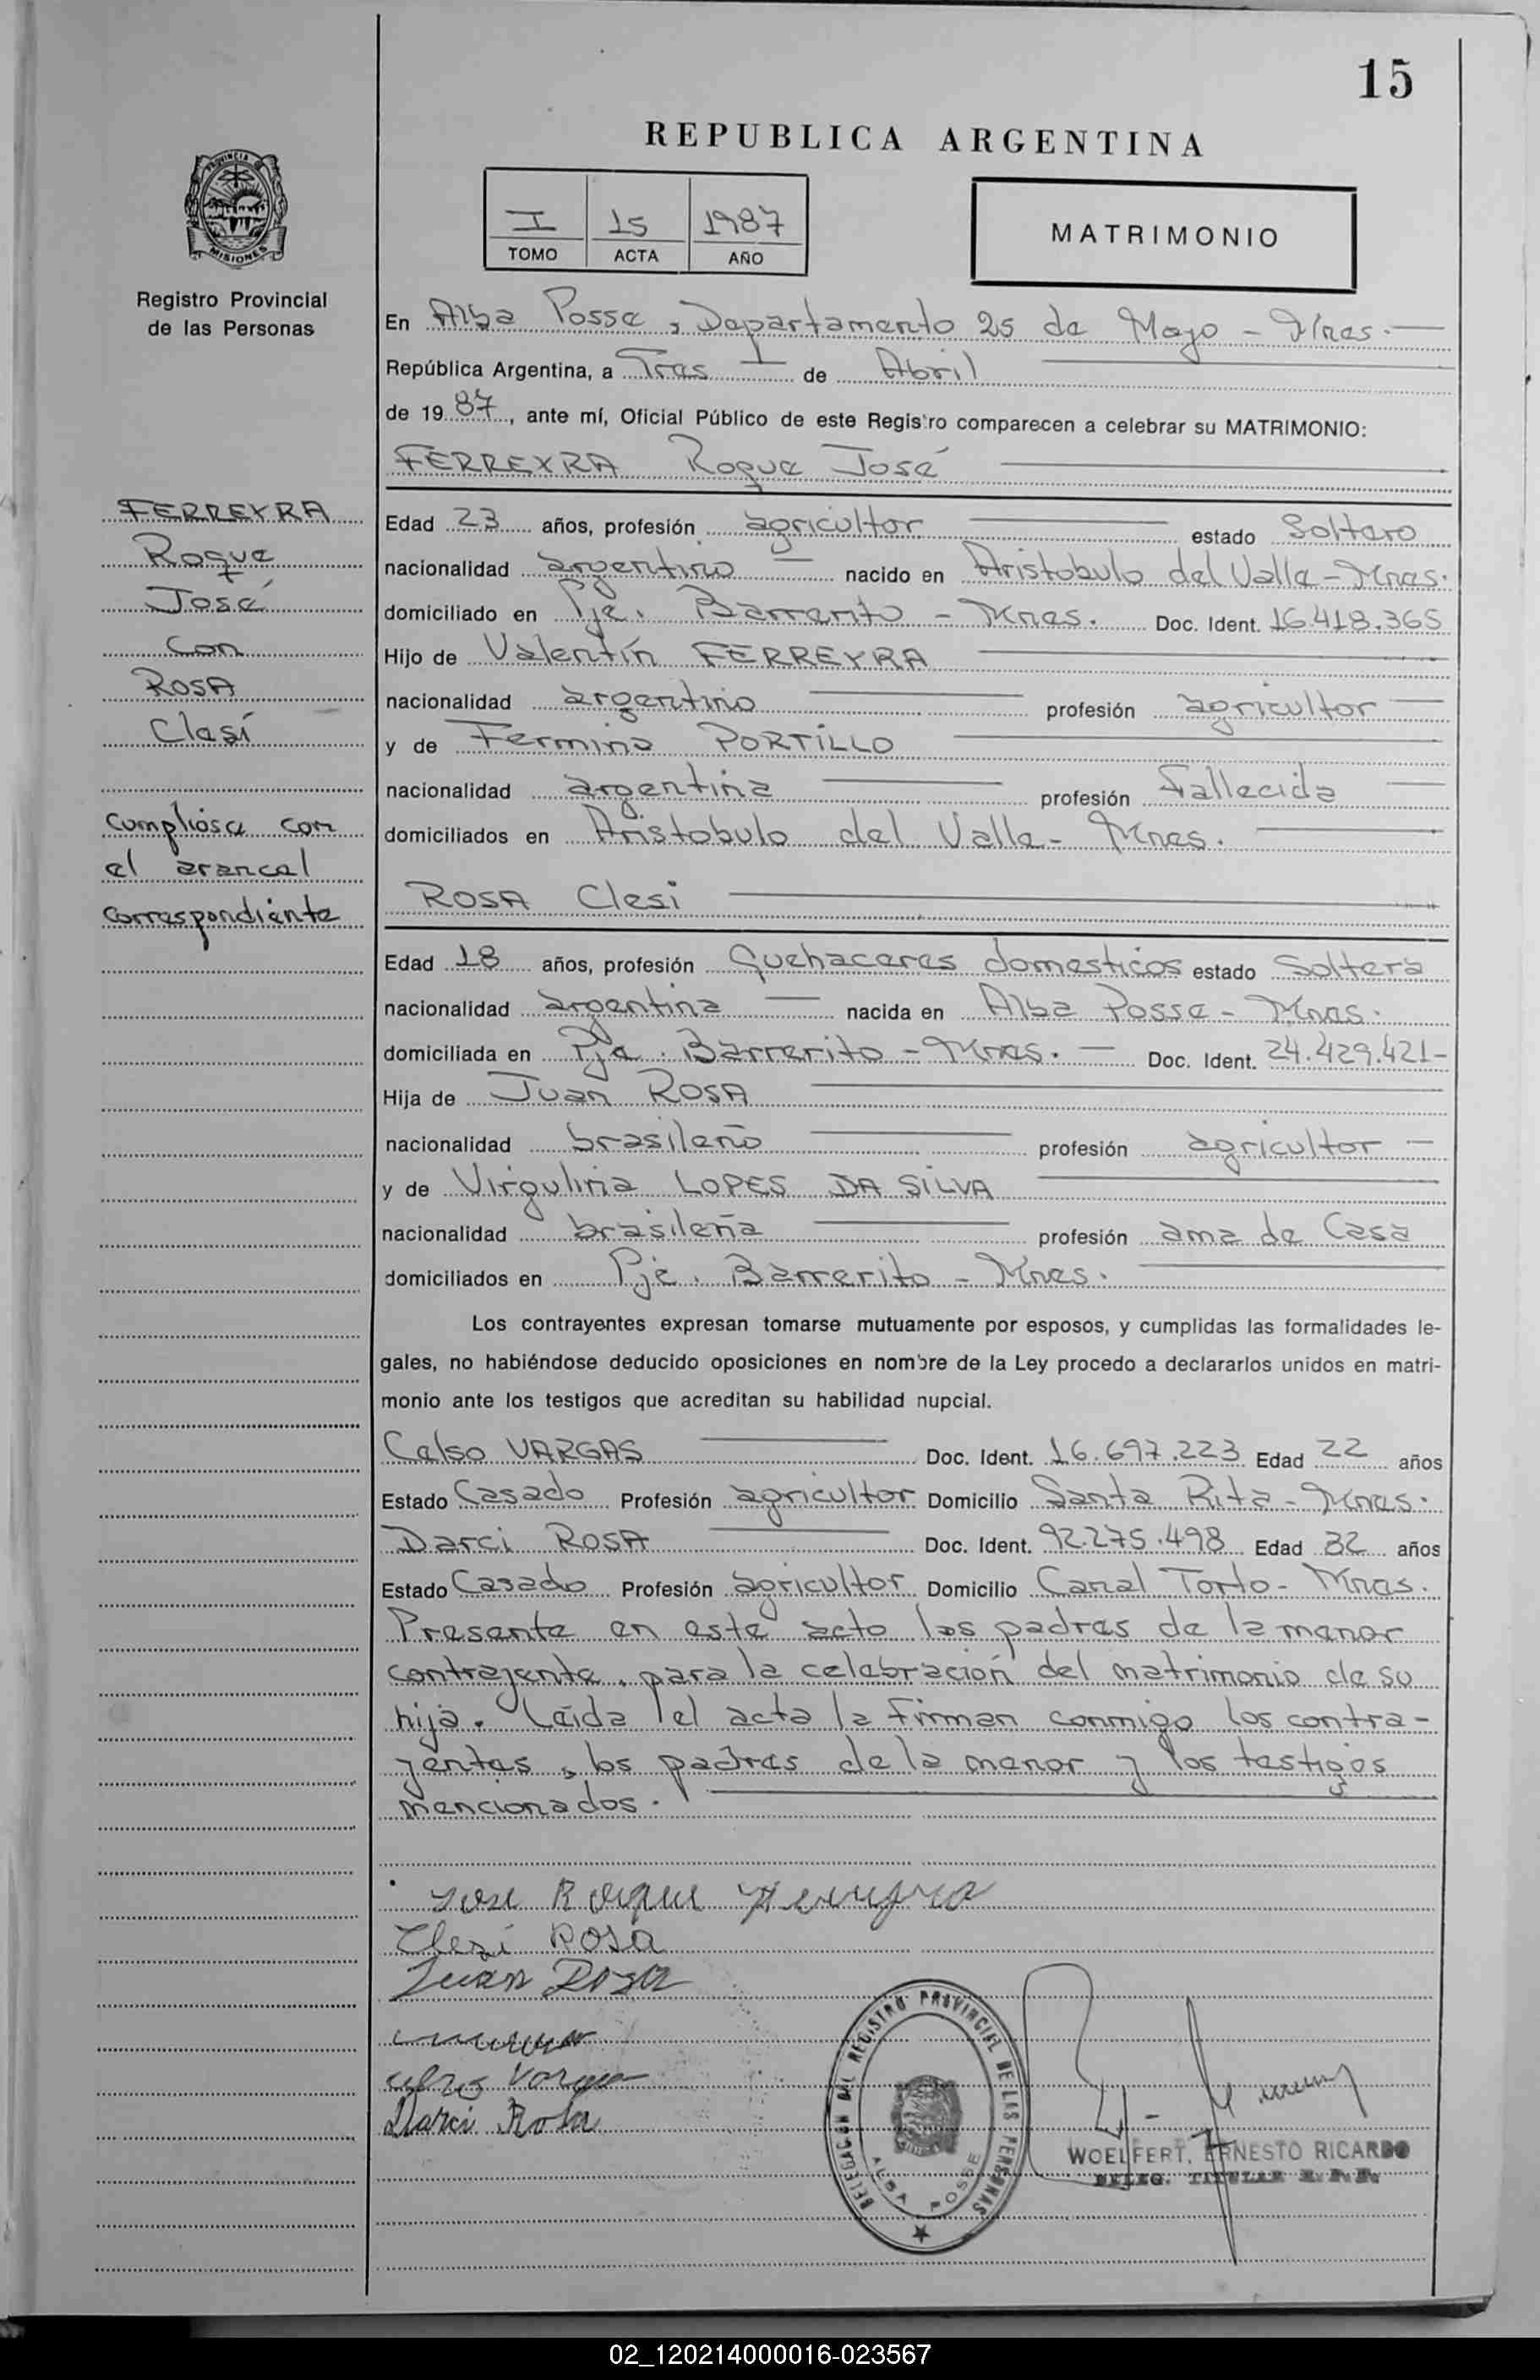 15
REPUBLICA ARGENTINA
I 15 1987
TOMO ACTA AÑO
MATRIMONIO
PROVINCIA DE
MISIONES
Registro Provincial
de las Personas
En Alba Posse, Departamento 25 de Mayo - Mnes.
República Argentina, a Tres de Abril
de 1987, ante mí, Oficial Público de este Registro comparecen a celebrar su MATRIMONIO:
FERREYRA Roque José
FERREYRA
Roque
José
Con
ROSA
Clesi
Cumpliose con
el arancel
correspondiente
Edad 23 años, profesión agricultor estado Soltero
nacionalidad argentino nacido en Aristobulo del Valle - Mnes.
domiciliado en Pje. Barrerito - Mnes. Doc. Ident. 16.418.365
Hijo de Valentín FERREYRA
nacionalidad argentino profesión agricultor
y de Fermina PORTILLO
nacionalidad argentina profesión Fallecida
domiciliados en Aristobulo del Valle - Mnes.
ROSA Clesi
Edad 18 años, profesión Quehaceres domesticos estado Soltera
nacionalidad argentina nacida en Alba Posse - Mnes.
domiciliada en Pje. Barrerito - Mnes. Doc. Ident. 24.429.421-
Hija de Juan ROSA
nacionalidad brasileño profesión agricultor
y de Virgulina LOPES DA SILVA
nacionalidad brasileña profesión ama de Casa
domiciliados en Pje. Barrerito - Mnes.
Los contrayentes expresan tomarse mutuamente por esposos, y cumplidas las formalidades le-
gales, no habiéndose deducido oposiciones en nombre de la Ley procedo a declararlos unidos en matri-
monio ante los testigos que acreditan su habilidad nupcial.
Celso VARGAS Doc. Ident. 16.697.223 Edad 22 años
Estado Casado Profesión agricultor Domicilio Santa Rita - Mnes.
Darci ROSA Doc. Ident. 92.275.498 Edad 32 años
Estado Casado Profesión agricultor Domicilio Canal Torto - Mnes.
Presente en este acto los padres de la menor
contrayente, para la celebración del matrimonio de su
hija. Leída el acta la firman conmigo los contra-
yentes, los padres de la menor y los testigos
mencionados.
Jose Roque Ferreyra
Clesi Rosa
Juan Rosa
Celso Vargas
Darci Rosa
DELEGACION DEL REGISTRO PROVINCIAL DE LAS PERSONAS
ALBA POSSE
WOELFERT, ERNESTO RICARDO
DELEG. TITULAR R. P. P.
02_120214000016-023567